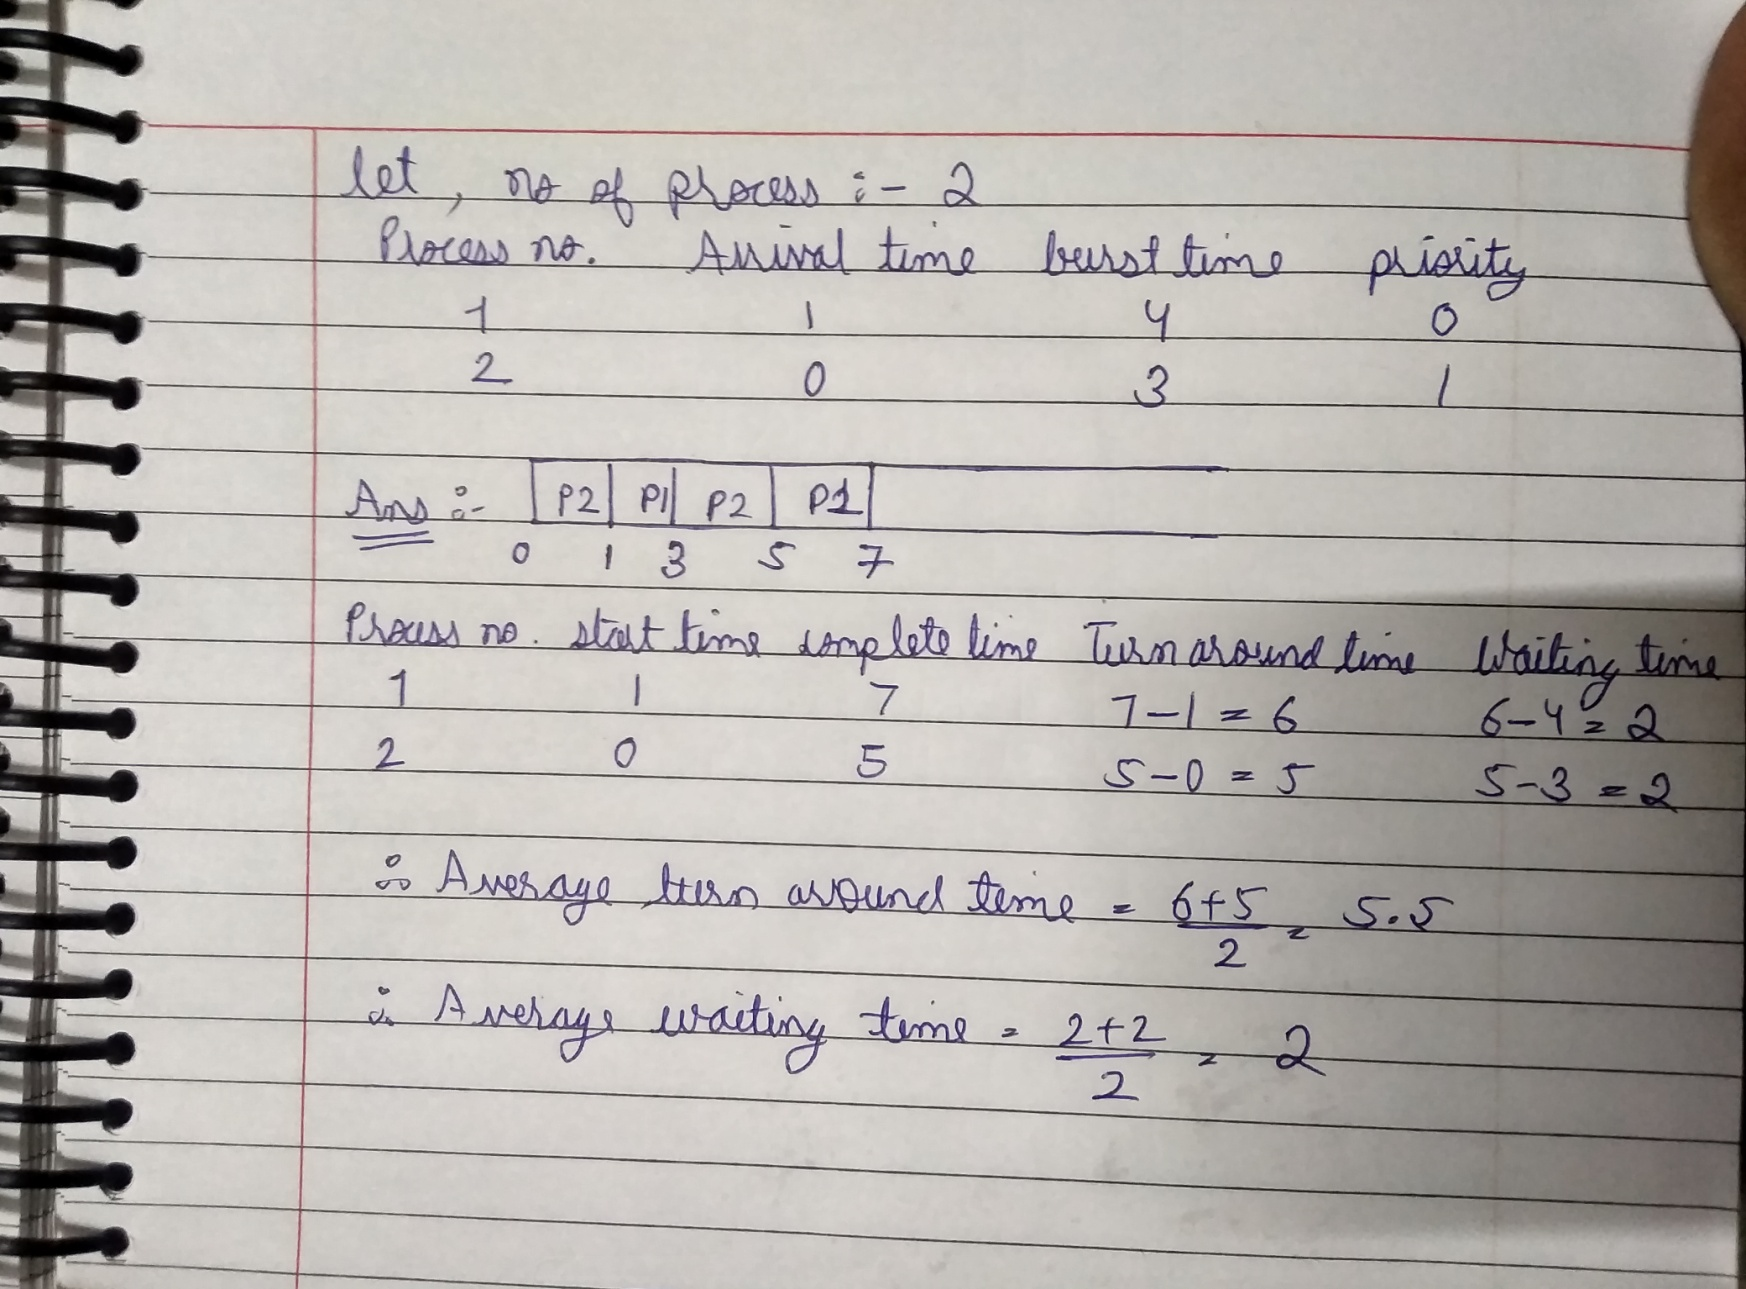 let, no of process :- 2
Process no. Arrival time burst time priority
1 1 4 0
2 0 3 1
Ans :- P2 P1 P2 P1
0 1 3 5 7
Process no. start time complete time Turn around time Waiting time
1 1 7 7-1 = 6 6-4 = 2
2 0 5 5-0 = 5 5-3 = 2
∴ Average turn around time = 6+5/2 = 5.5
∴ Average waiting time = 2+2/2 = 2